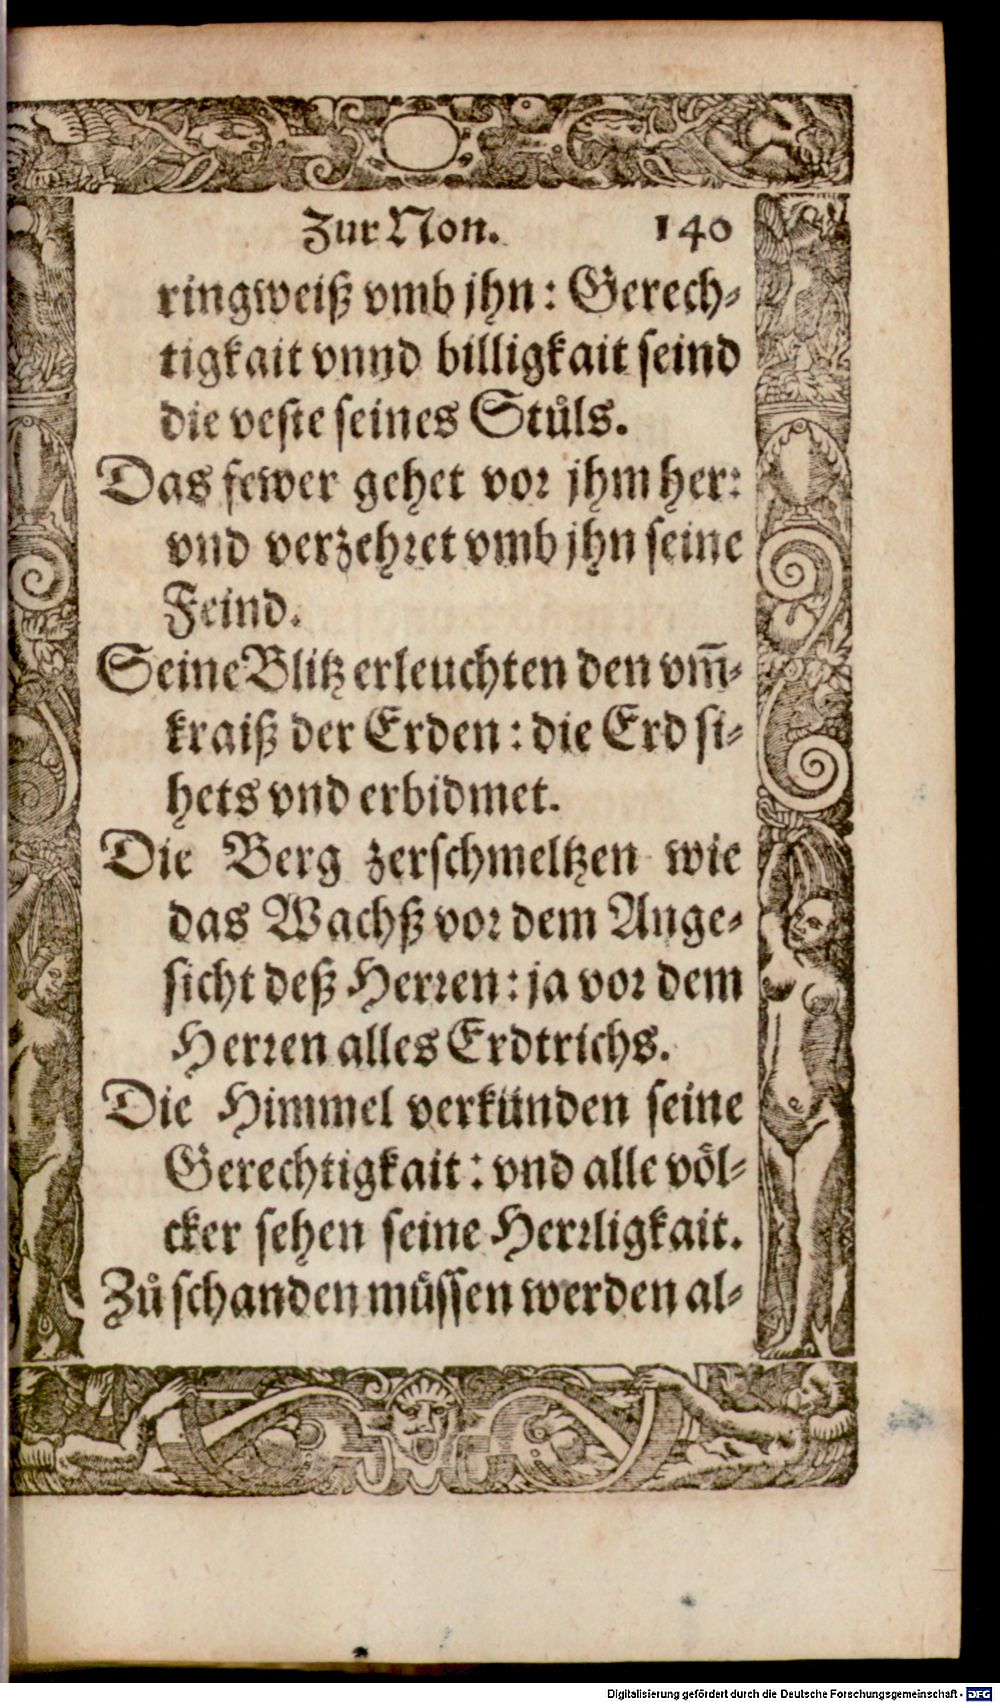 Zur Non. 140
ringweiß vmb jhn: Gerech-
tigkait vnnd billigkait seind
die veste seines Stůls.
Das fewer gehet vor jhm her:
vnd verzehret vmb jhn seine
Feind.
Seine Blitz erleuchten den vm̄-
kraiß der Erden: die Erd si-
hets vnd erbidmet.
Die Berg zerschmeltzen wie
das Wachß vor dem Ange-
sicht deß Herren: ja vor dem
Herren alles Erdtrichs.
Die Himmel verkünden seine
Gerechtigkait: vnd alle völ-
cker sehen seine Herrligkait.
Zů schanden müssen werden al-
Digitalisierung gefördert durch die Deutsche Forschungsgemeinschaft - DFG